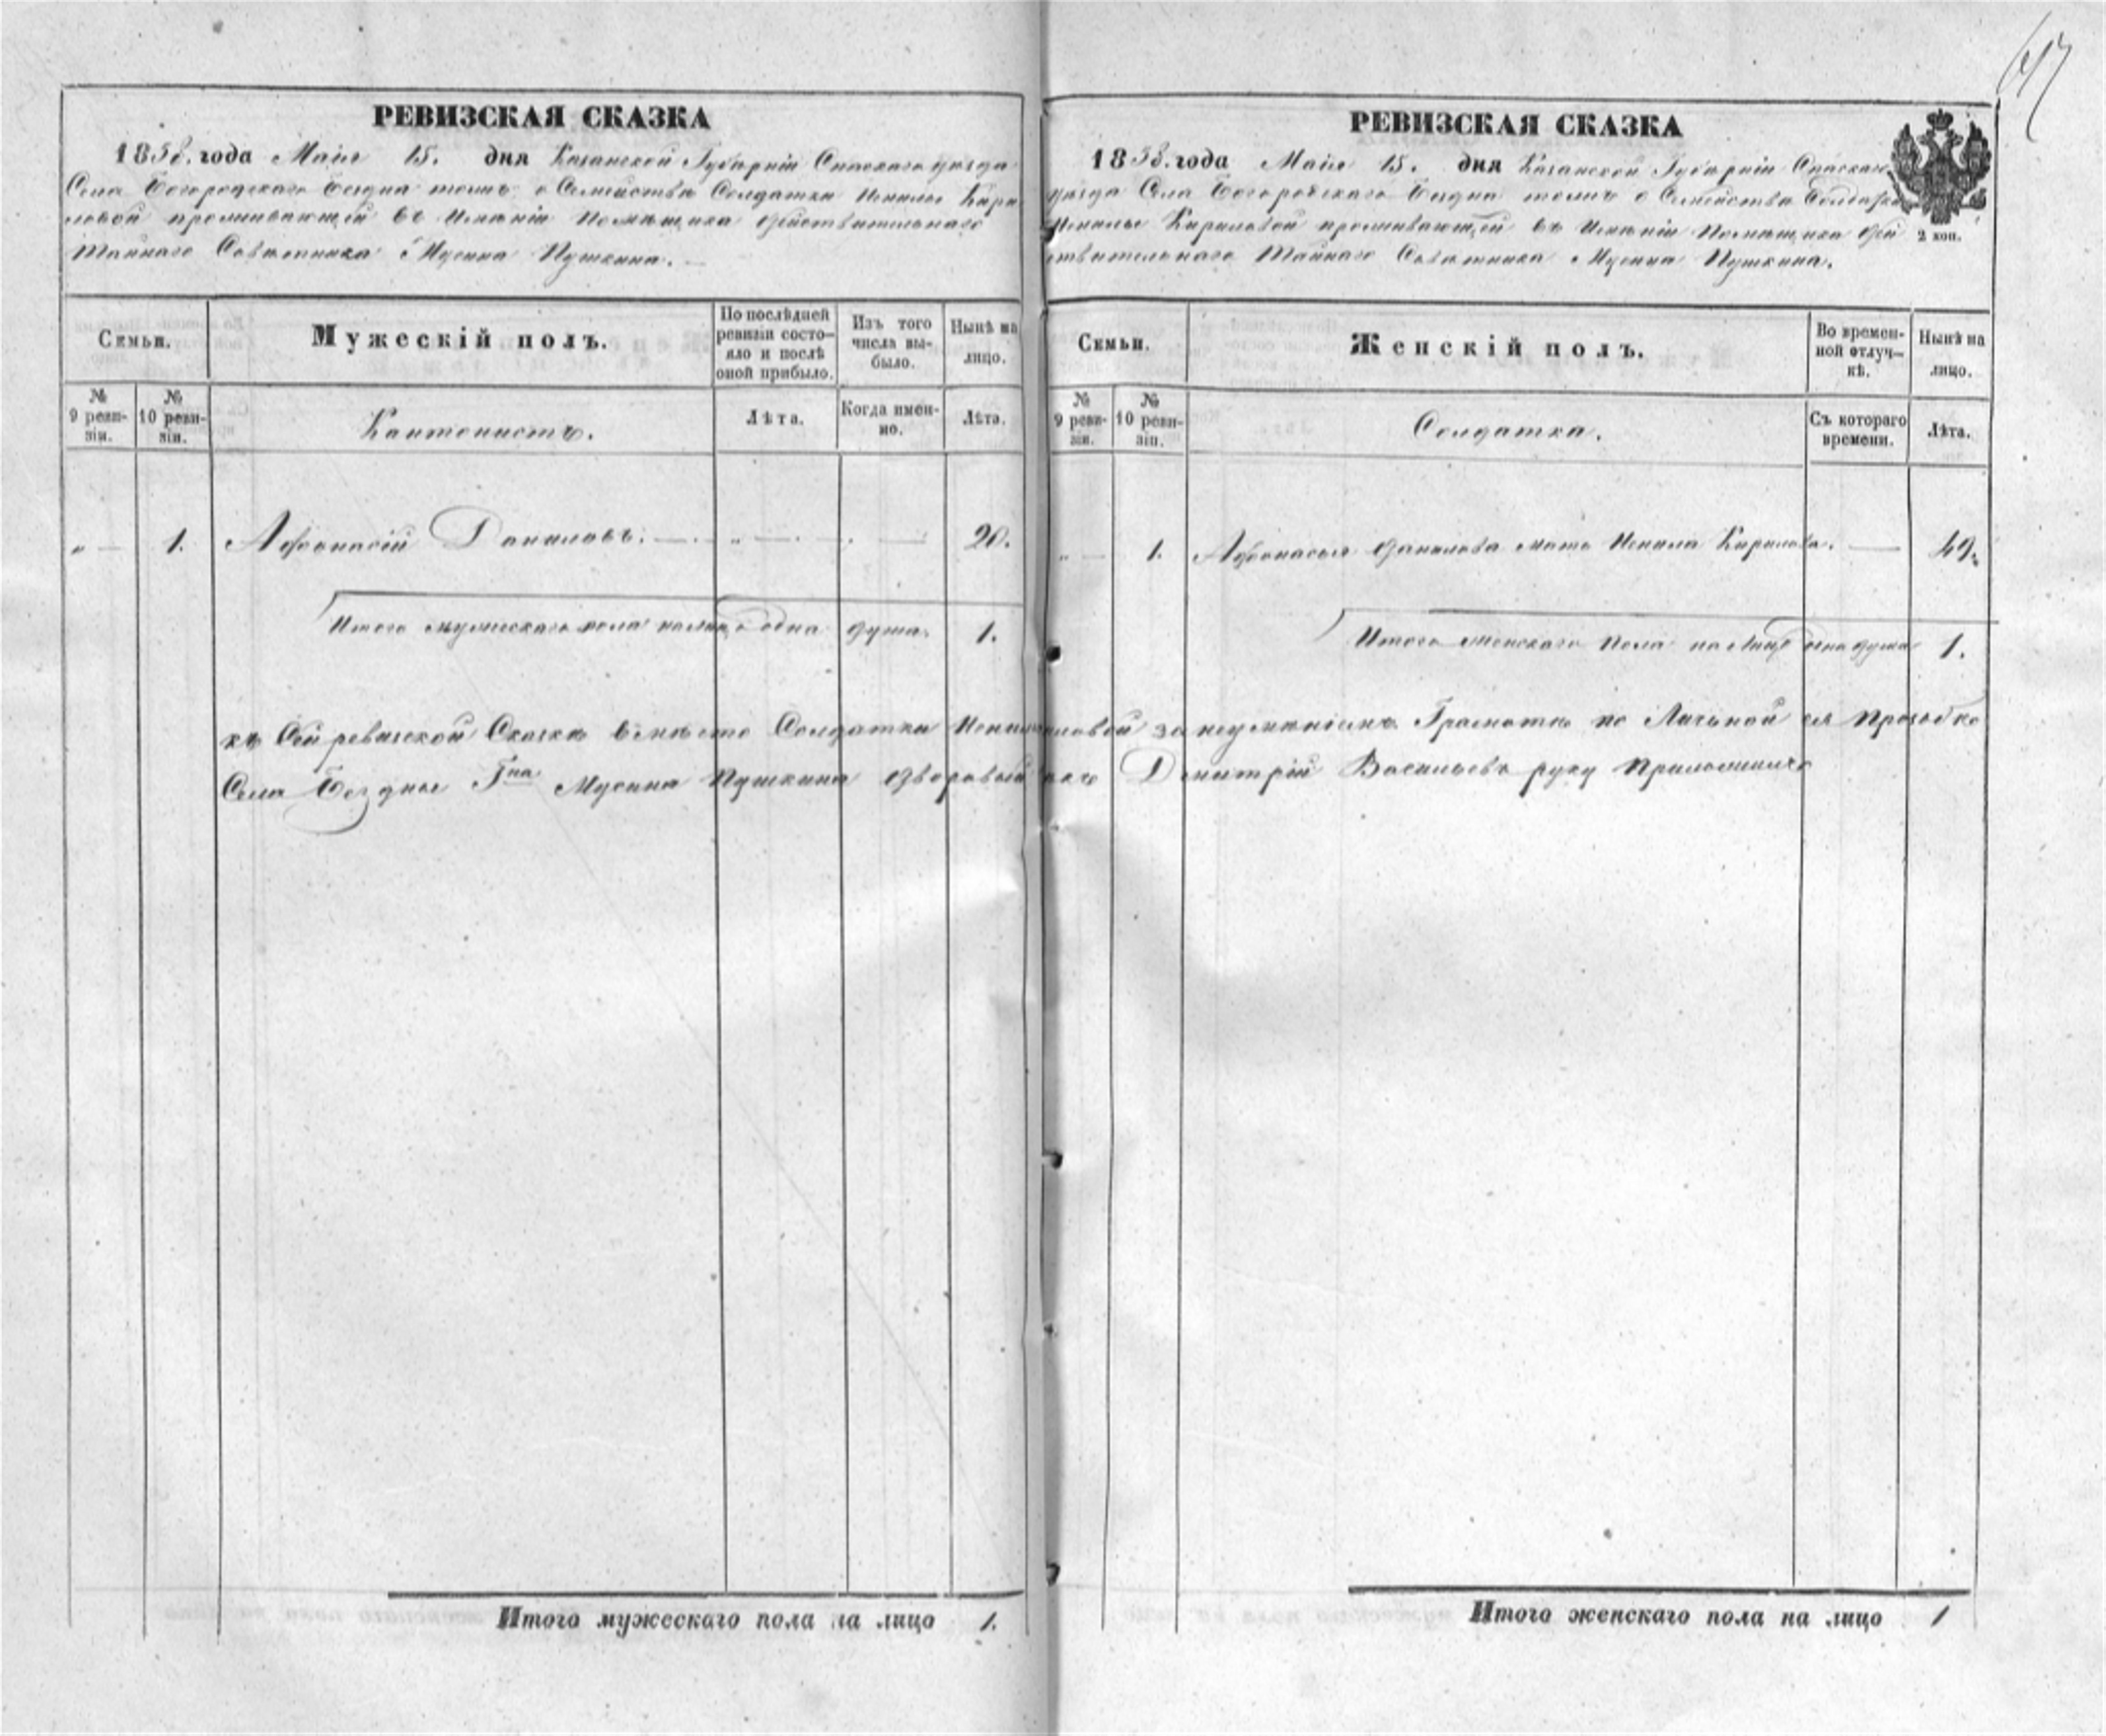 РЕВИЗСКАЯ СКАЗКА
1858. года Маія 15. дня Казанской Губерніи Спаскаго уезда
Села Богородскаго Бездна тожъ о Семействе Солдатки Ненилы Кири
ловой проживающей въ Имѣніи Помѣщика Действительнаго
Тайнаго Советника Мусина Пушкина.
Семьи.
Мужескій полъ.
По послѣдней
ревизіи состо-
яло и послѣ
оной прибыло.
Изъ того
числа вы-
было.
Нынѣ на
лицо.
№
9 реви-
зіи.
№
10 реви-
зіи.
Кантонистъ.
Лѣта.
Когда имен-
но.
Лѣта.
„ — 1. Афонасій Даниловъ. — „ — . — 20.
Итого мужескаго пола налицо одна душа. 1.
къ Сей ревизской Сказке вместо Солдатки
Села Бездны Гна Мусина Пушкина Дворовый
Итого мужескаго пола на лицо 1.
РЕВИЗСКАЯ СКАЗКА
1858. года Маія 15. дня Казанской Губерніи Спаскаго
уезда Села Богородскаго Бездна тожъ о Семействе Солдатки
Ненилы Кириловой проживающей въ Имѣніи Помѣщика Дей
2 коп.
ствительнаго Тайнаго Советника Мусина Пушкина.
Семьи.
Женскій полъ.
Во времен-
ной отлуч-
кѣ.
Нынѣ на
лицо.
№
9 реви-
зіи.
№
10 реви-
зіи.
Солдатка.
Съ котораго
времени.
Лѣта.
„ — 1. Афонасья Данилова мать Ненила Кирилова. — 49.
Итого женскаго пола на лицо одна душа 1.
за неумѣніемъ Грамоте по Личьной ея прозьбе
Дмитрій Васильевъ руку приложилъ
Итого женскаго пола на лицо 1